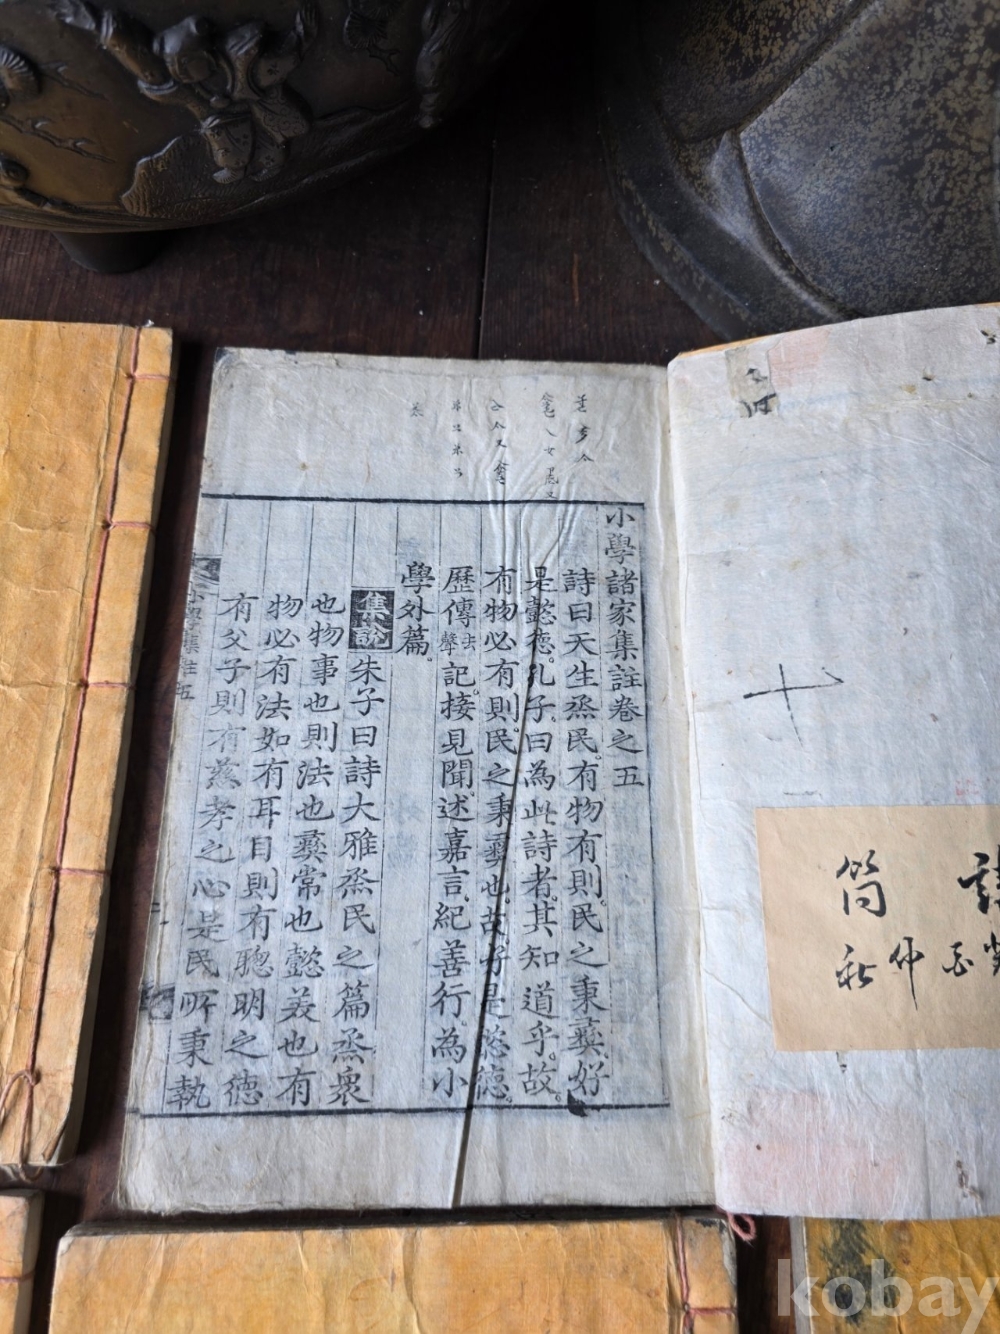 小學諸家集註卷之五
詩曰天生烝民。有物有則。民之秉彝。好
是懿德。孔子曰。為此詩者。其知道乎。故
有物必有則。民之秉彝也。故好是懿德。
歷傳去聲記。接見聞。述嘉言。紀善行。為小
學外篇。
集說 朱子曰詩大雅烝民之篇烝衆
也物事也則法也彝常也懿美也有
物必有法如有耳目則有聰明之德
有父子則有慈孝之心是民所秉執
小學集註五
十
簡
秋仲
kobay